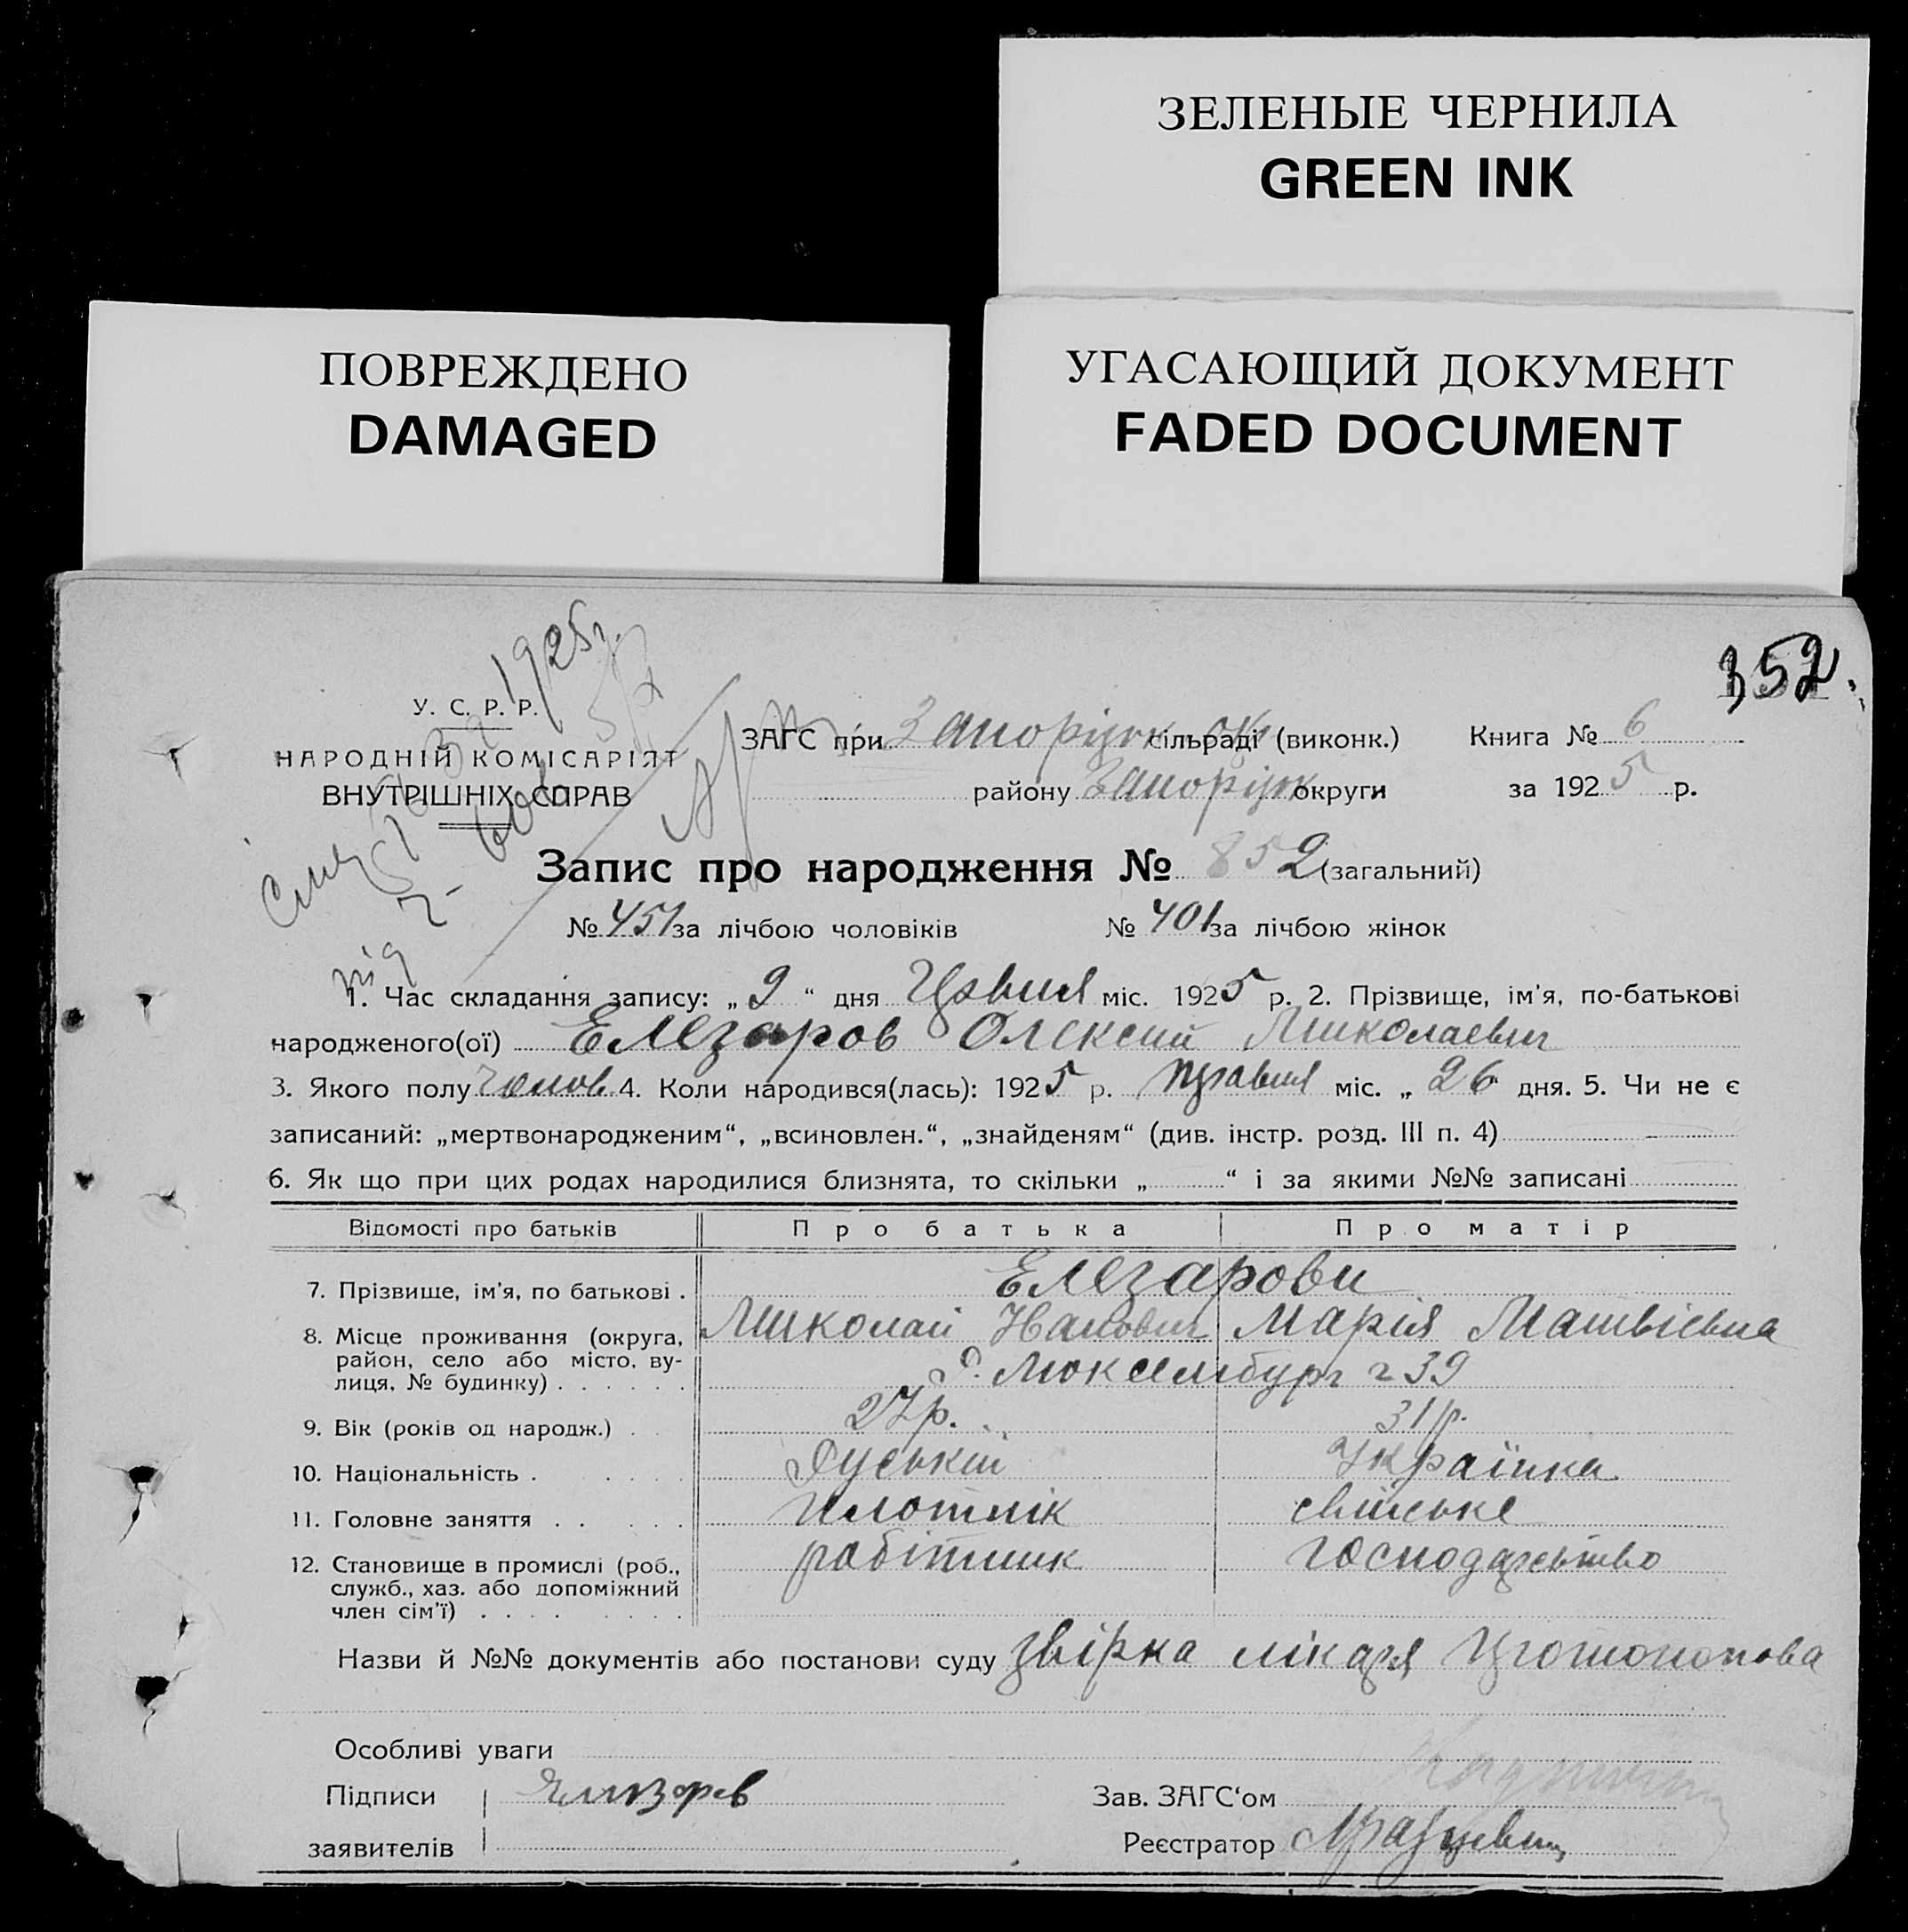 ЗЕЛЕНЫЕ ЧЕРНИЛА
GREEN INK
ПОВРЕЖДЕНО
DAMAGED
УГАСАЮЩИЙ ДОКУМЕНТ
FADED DOCUMENT
352.
1925 г.
У. С. Р. Р.
НАРОДНІЙ КОМІСАРІЯТ
ВНУТРІШНІХ СПРАВ
ЗАГС при Запоріжск. ок сільраді (виконк.) Книга № 6
району Запоріжж округи за 1925 р.
Запис про народження № 852 (загальний)
№ 451 за лічбою чоловіків № 401 за лічбою жінок
1. Час складання запису: „ 9 “ дня міс. 1925 р. 2. Прізвище, ім'я, по-батькові
народженого(ої) Елезаров Олексий Миколаевич
3. Якого полу чолов. 4. Коли народився(лась): 1925 р. травня міс. „ 26 дня. 5. Чи не є
записаний: „мертвонародженим“, „всиновлен.“, „знайденям“ (див. інстр. розд. III п. 4)
6. Як що при цих родах народилися близнята, то скільки „ “ і за якими №№ записані
Відомості про батьків Про батька Про матір
7. Прізвище, ім'я, по батькові . Елезарови
Миколай Іванович Марія Матвієвна
8. Місце проживання (округа,
район, село або місто, ву-
лиця, № будинку) Люксембург 39
9. Вік (років од народж.) 27 р. 31 р.
10. Національність . Руський Українка
11. Головне заняття плотнік свійське
12. Становище в промислі (роб.,
служб., хаз. або допоміжний
член сім'ї) робітник господарьство
Назви й №№ документів або постанови суду звірка лікаря
Особливі уваги
Підписи
заявителів
Зав. ЗАГС'ом
Реєстратор